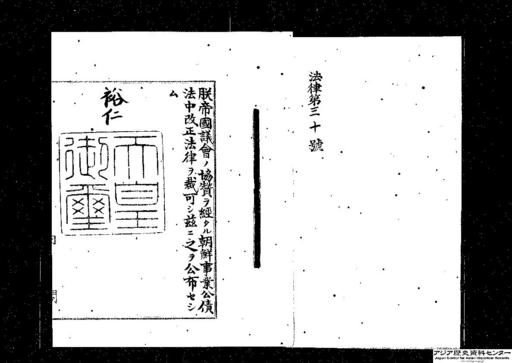 法律第三十號
朕帝國議會ノ協賛ヲ經タル朝鮮事業公債
法中改正法律ヲ裁可シ茲ニ之ヲ公布セシ
ム
裕仁
天皇
御璽
アジア歴史資料センター
Japan Center for Asian Historical Records